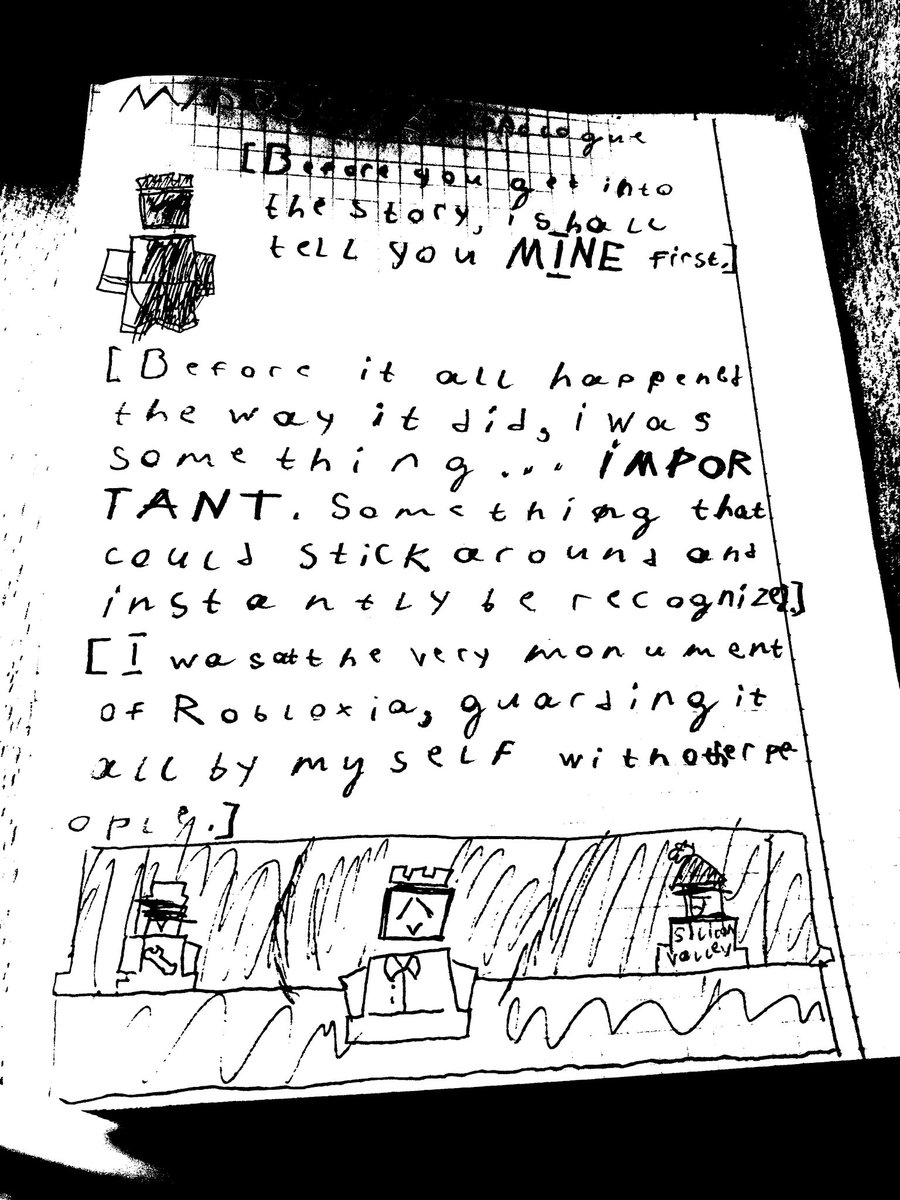 [Before you get into
the story, i shall
tell you MINE first.]
[Before it all happened
the way it did, i was
something... IMPOR
TANT. Something that
could stick around and
instantly be recognized.]
[I was at the very monument
of Robloxia, guarding it
all by myself with other pe
ople.]
Silicon
Valley